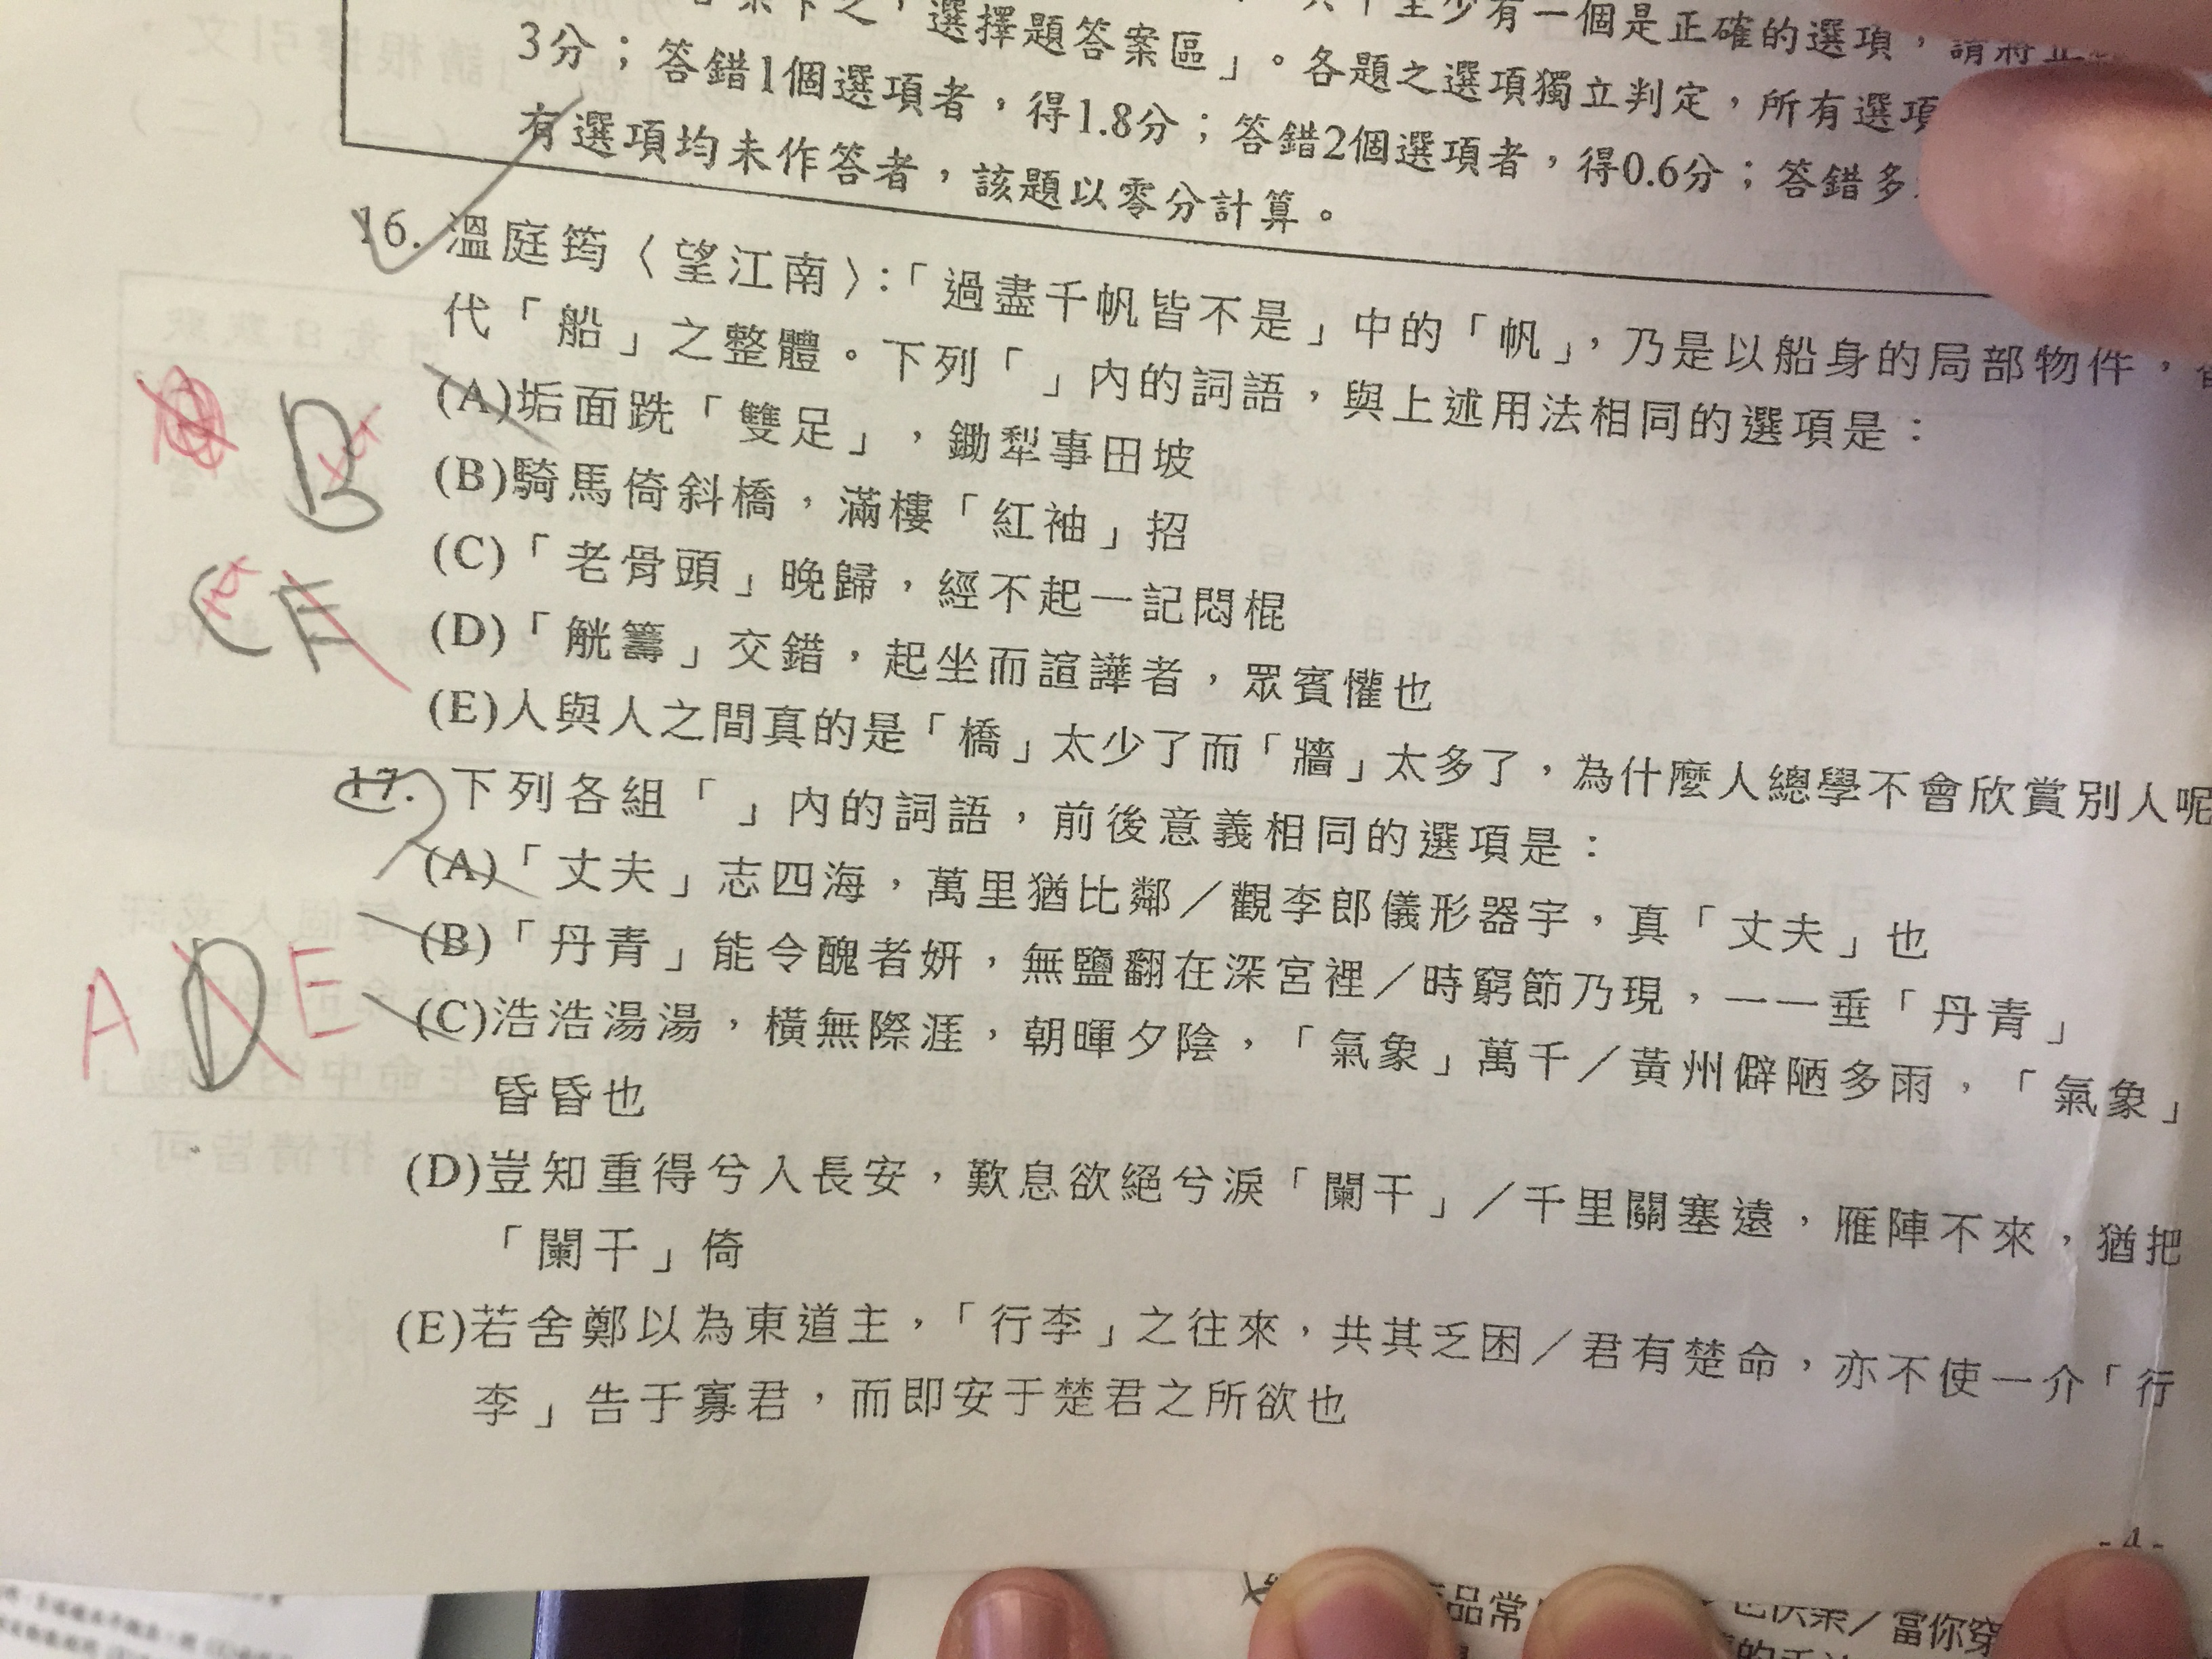 選擇題答案區」。各題之選項獨立判定，所有選項
至少有一個是正確的選項，請將
3分；答錯1個選項者，得1.8分；答錯2個選項者，得0.6分；答錯多
有選項均未作答者，該題以零分計算。
16. 溫庭筠〈望江南〉：「過盡千帆皆不是」中的「帆」，乃是以船身的局部物件，
代「船」之整體。下列「 」內的詞語，與上述用法相同的選項是：
(A)垢面跣「雙足」，鋤犁事田坡
(B)騎馬倚斜橋，滿樓「紅袖」招
B
(C)「老骨頭」晚歸，經不起一記悶棍
(D)「觥籌」交錯，起坐而諠譁者，眾賓懽也
C E
(E)人與人之間真的是「橋」太少了而「牆」太多了，為什麼人總學不會欣賞別人呢
17. 下列各組「 」內的詞語，前後意義相同的選項是：
(A)「丈夫」志四海，萬里猶比鄰／觀李郎儀形器宇，真「丈夫」也
(B)「丹青」能令醜者妍，無鹽翻在深宮裡／時窮節乃現，一一垂「丹青」
(C)浩浩湯湯，橫無際涯，朝暉夕陰，「氣象」萬千／黃州僻陋多雨，「氣象」
昏昏也
A D E
(D)豈知重得兮入長安，歎息欲絕兮淚「闌干」／千里關塞遠，雁陣不來，猶把
「闌干」倚
(E)若舍鄭以為東道主，「行李」之往來，共其乏困／君有楚命，亦不使一介「行
李」告于寡君，而即安于楚君之所欲也
- 4 -
品常
快樂／當你穿